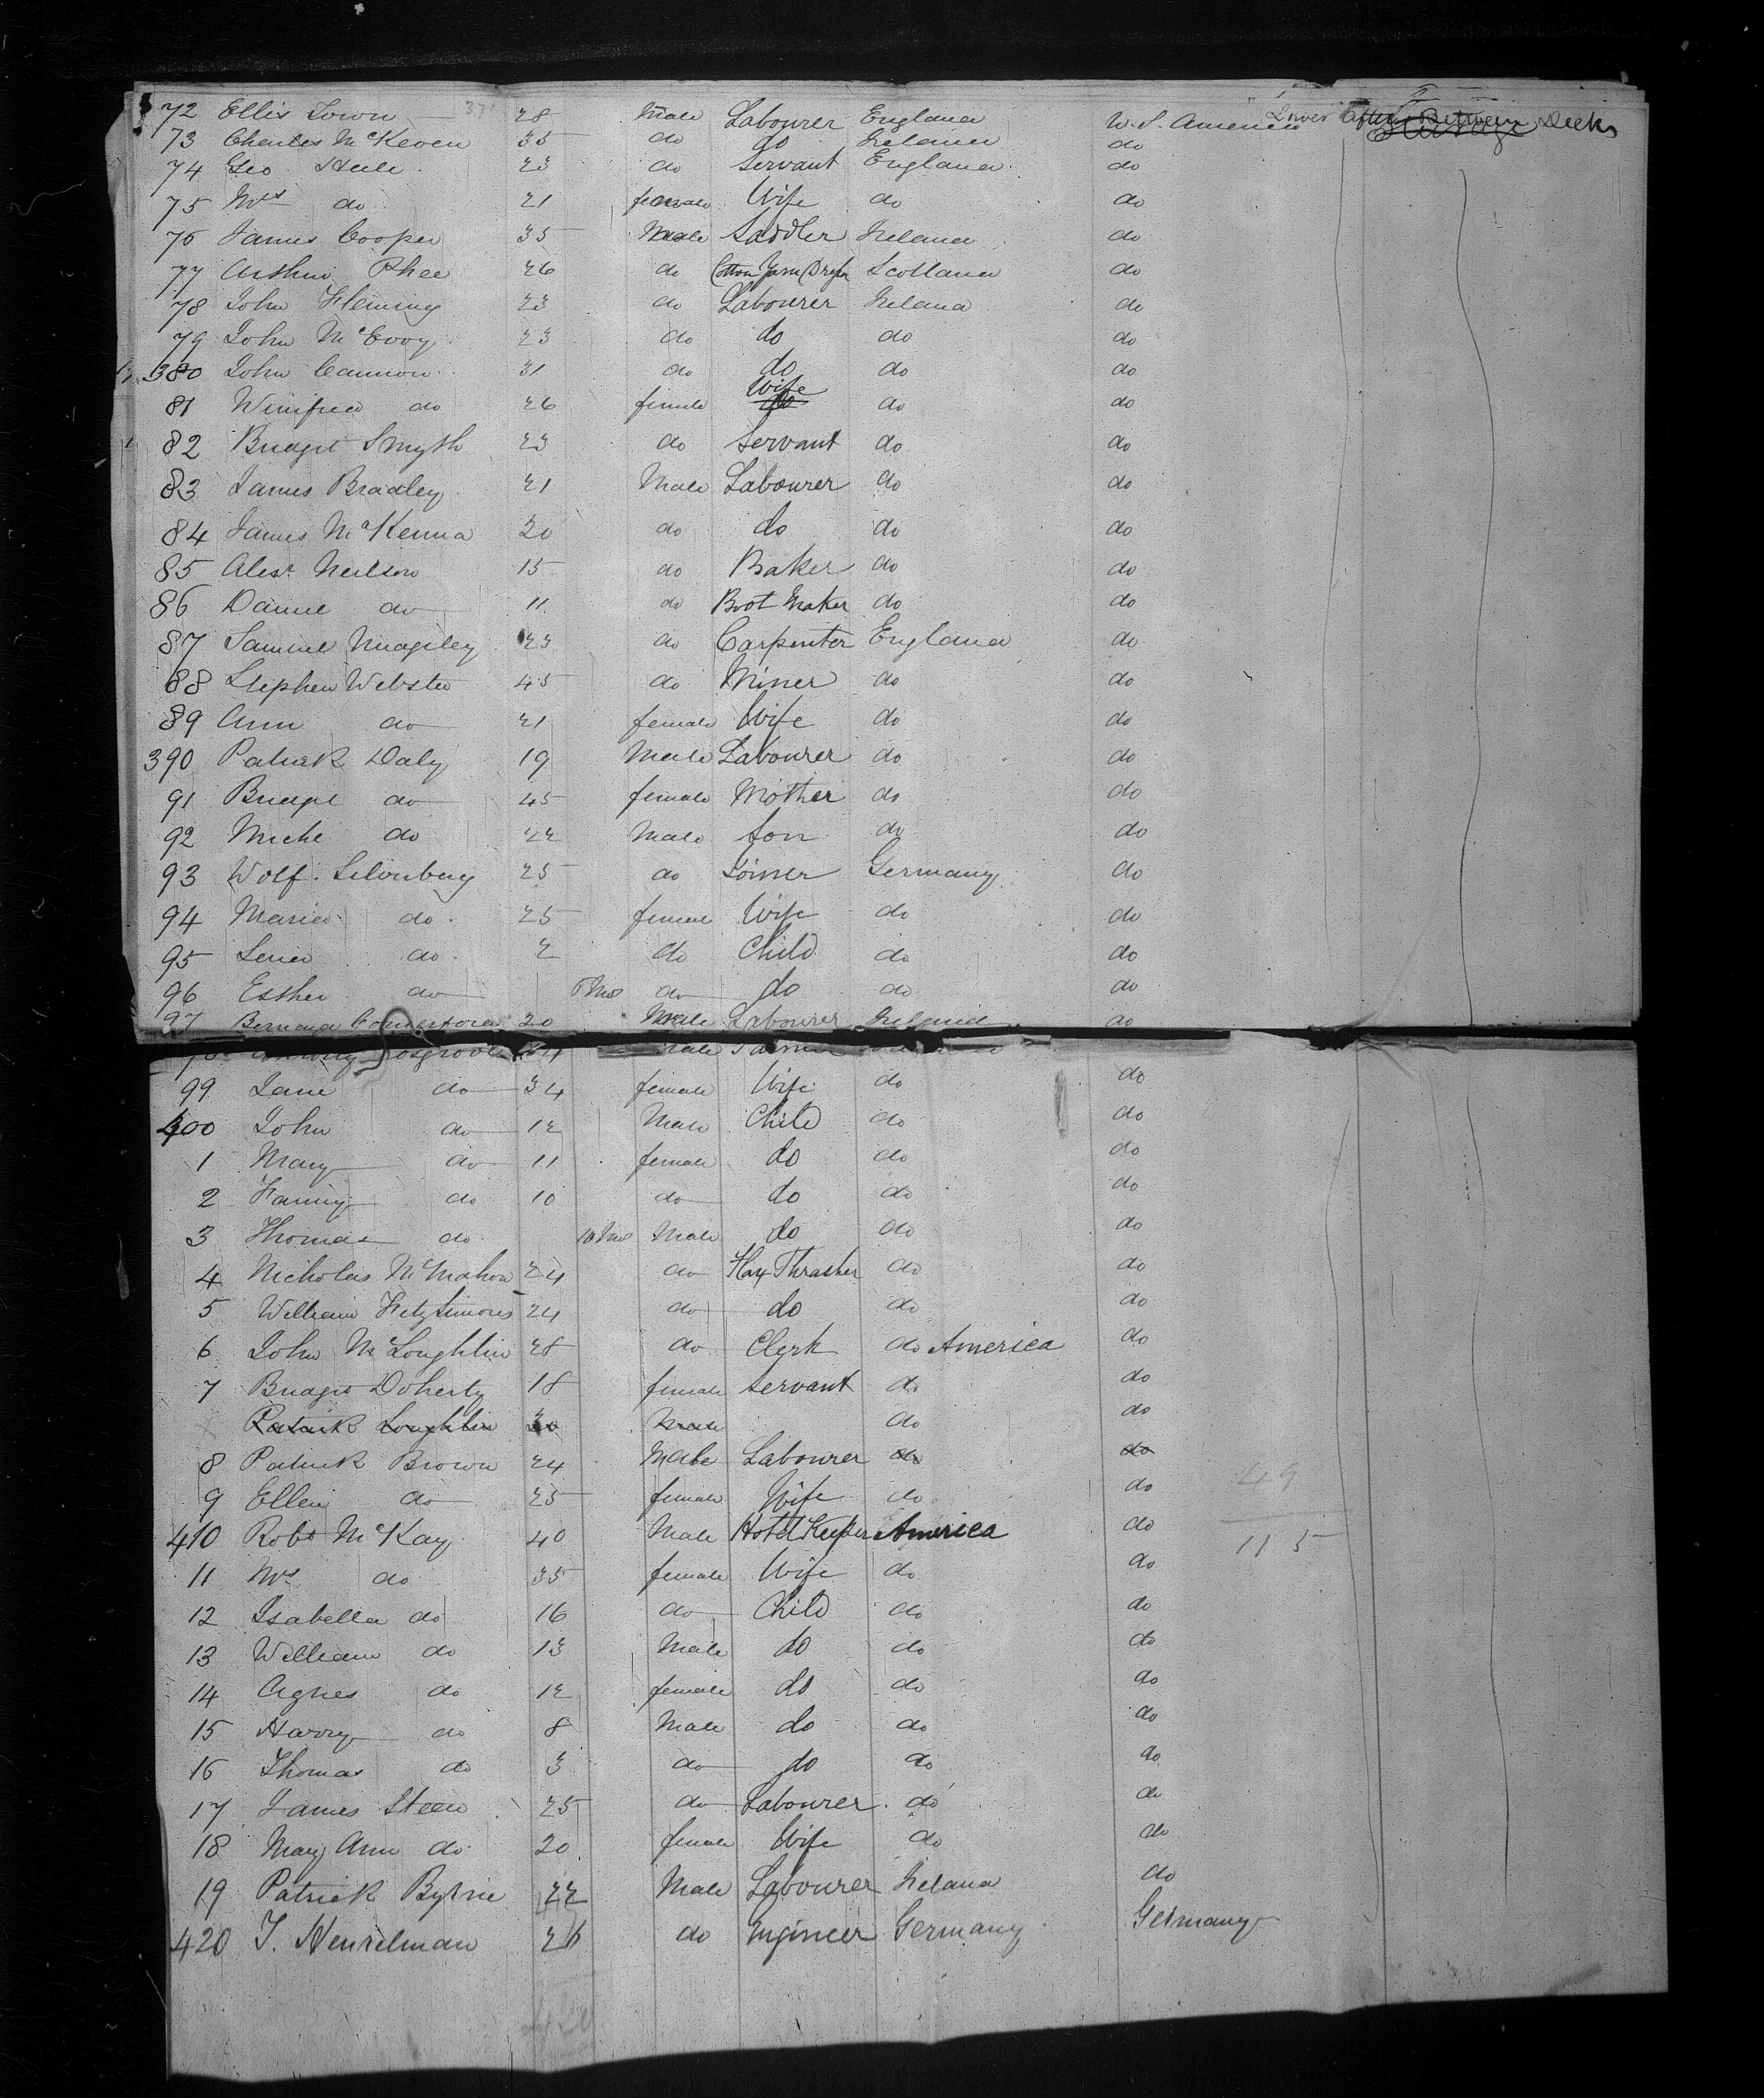 72 Ellis Town 28 Male Labourer England U.S. America Lower After Between Decks
73 Charles McKeven 35 do do Ireland do
74 Geo. Steele 23 do Servant England do
75 Mrs do 21 female Wife do do
76 James Cooper 35 Male Saddler Ireland do
77 Arthur Rhee 26 do Cotton Yarn Dresser Scotland do
78 John Fleming 23 do Labourer Ireland do
79 John McEvoy 23 do do do do
380 John Cannon 31 do do do do
81 Winifred do 26 female Wife do do
82 Bridget Smyth 23 do Servant do do
83 James Bradley 21 Male Labourer do do
84 James McKenna 20 do do do do
85 Alexr Neilson 15 do Baker do do
86 Daniel do 11 do Boot Maker do do
87 Samuel 23 do Carpenter England do
88 Stephen Webster 45 do Miner do do
89 Ann do 21 female Wife do do
390 Patrick Daly 19 Male Labourer do do
91 Bridget do 45 female Mother do do
92 Michl do 22 Male Son do do
93 Wolf. Silverberg 25 do Joiner Germany do
94 Maria do 25 female Wife do do
95 do 2 do Child do do
96 Esther do Mos do do do do
97 Bernard 20 Male Labourer Ireland do
Cosgrove 34
99 Jane do 34 female Wife do do
400 John do 12 Male Child do do
1 Mary do 11 female do do do
2 Fanny do 10 do do do do
3 Thomas do 10 Mos Male do do do
4 Nicholas McMahon 24 do Flax Thrasher do do
5 William Fitzsimons 24 do do do do
6 John McLoughlin 28 do Clerk do America do
7 Bridget Doherty 18 female Servant do do
Patrick Loughlin 30 Male do do
8 Patrick Brown 24 Male Labourer do do
9 Ellen do 25 female Wife do do 49
410 Robt McKay 40 Male Hotel Keeper America do 115
11 Mrs do 35 female Wife do do
12 Isabella do 16 do Child do do
13 William do 13 Male do do do
14 Agnes do 12 female do do do
15 Harry do 8 Male do do do
16 Thomas do 3 do do do do
17 James Steen 25 do Labourer do do
18 Mary Ann do 20 female Wife do do
19 Patrick Byrne 22 Male Labourer Ireland do
420 J. Henselman 26 do Engineer Germany Germany
420